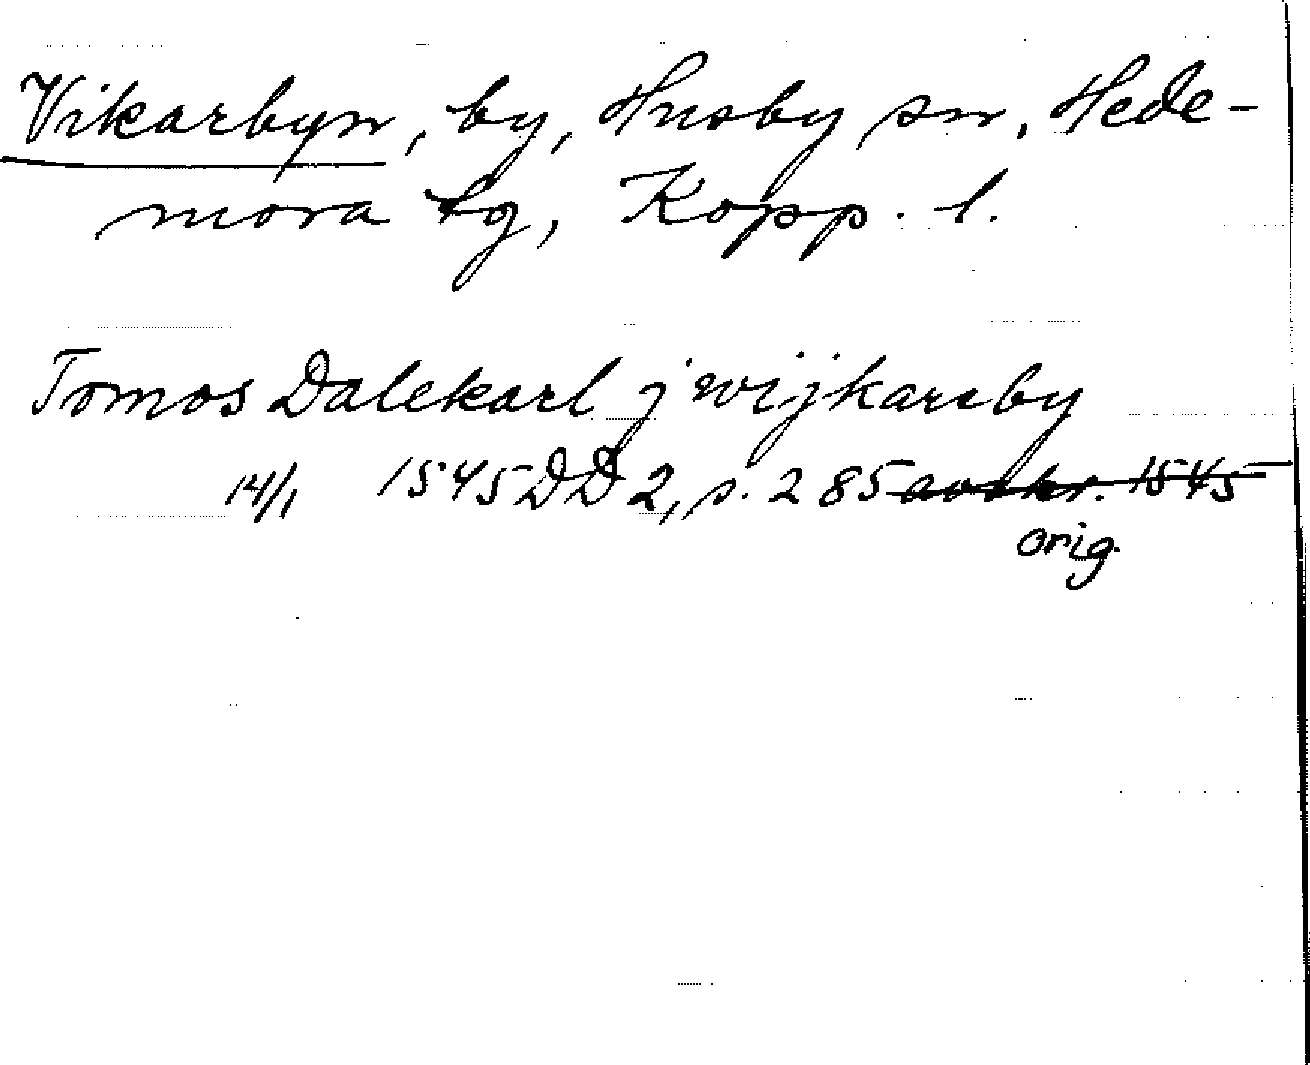 Vikarbyn, by, Husby sn, Hede-
mora tg, Kopp. l.
Tomos Dalekarl j wijkareby
14/1 1545 DD 2, s. 285 avskr. 1545
orig.